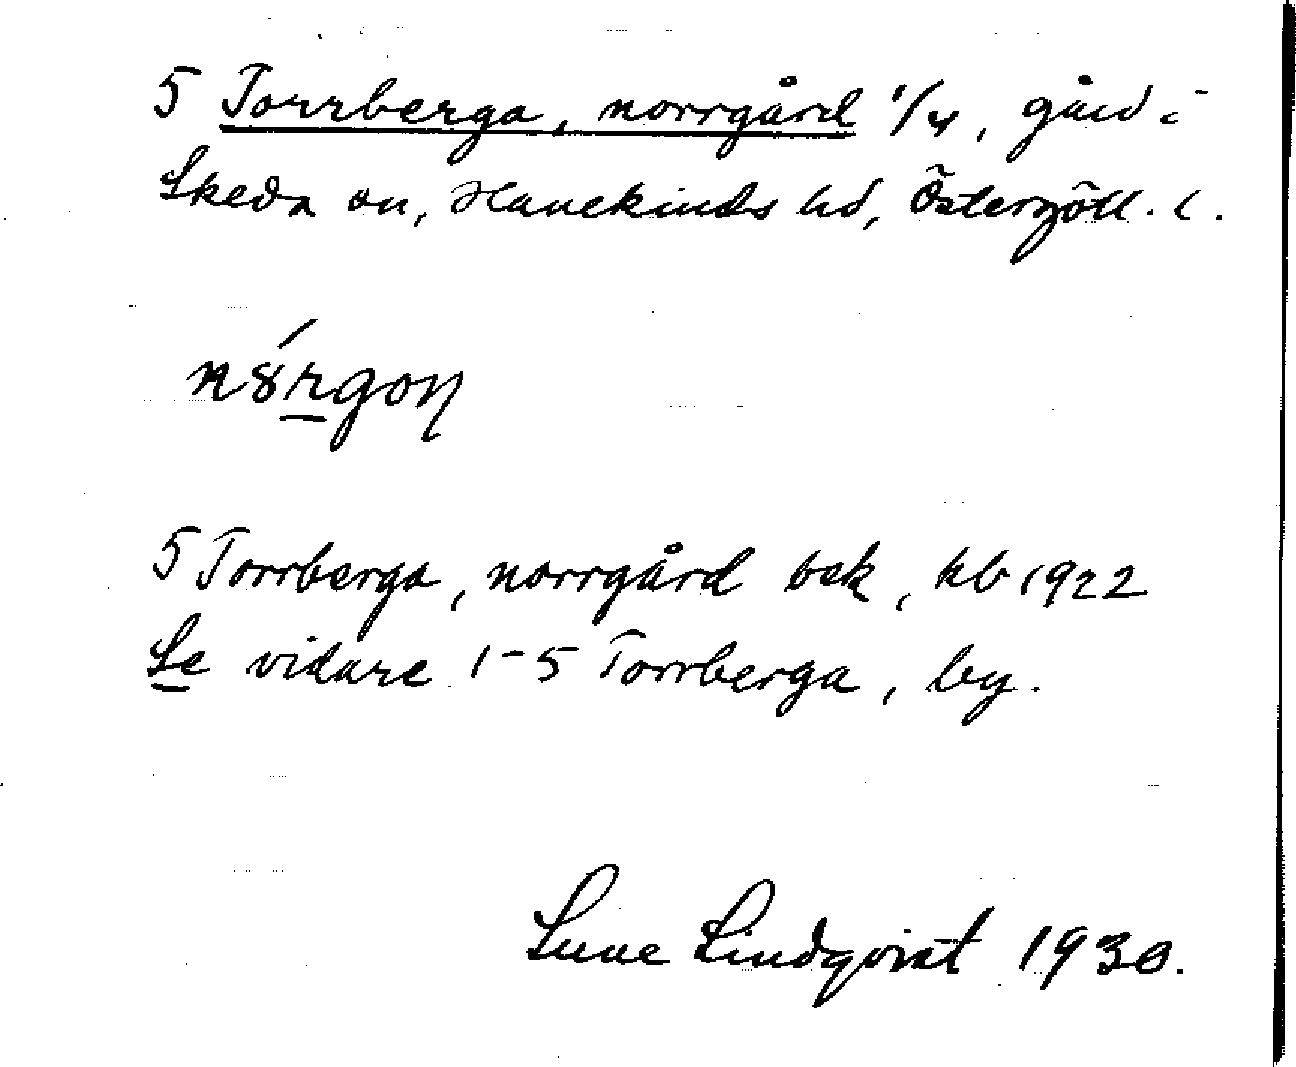 5 Torrberga, norrgård 1/4, gård i
Skeda sn, Hanekinds hd, Östergötl. l.
5 Torrberga, norrgård bek, kb 1922
Se vidare 1-5 Torrberga, by.
Sune Lindqvist 1930.